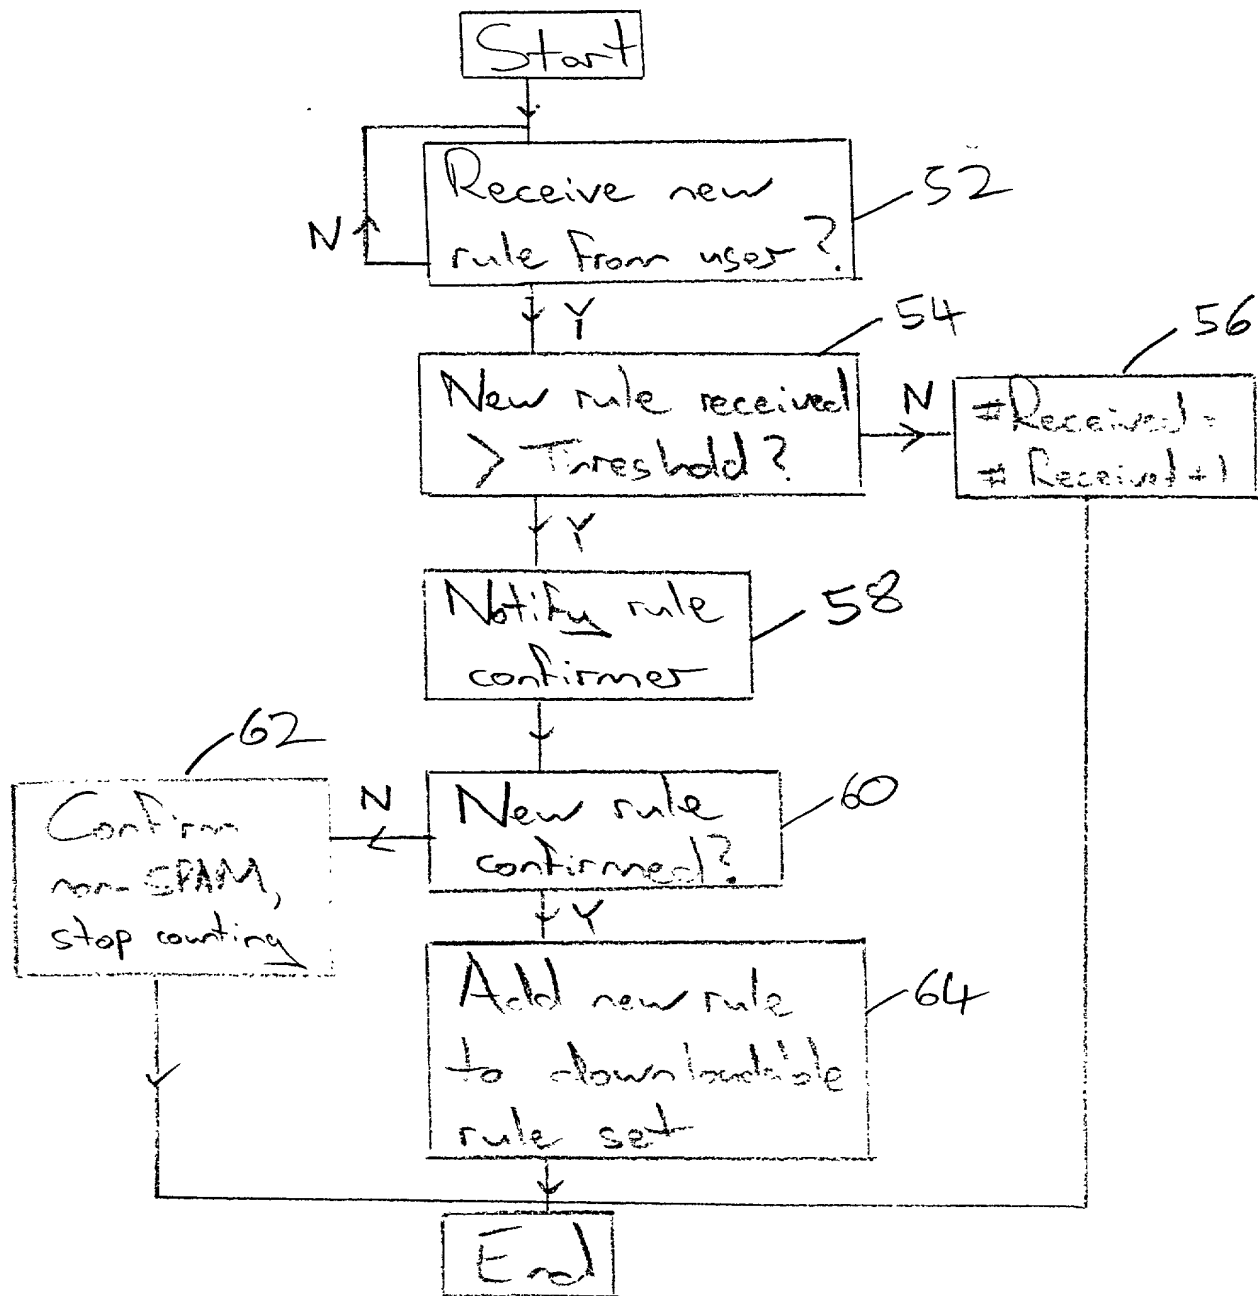 Start
Receive new
rule from user?
52
N
Y
54
New rule received
> Threshold?
N
56
#Received =
# Received + 1
Y
Notify rule
confirmer
58
62
Confirm
non-SPAM,
stop counting
N
New rule
confirmed?
60
Y
Add new rule
to downloadable
rule set
64
End